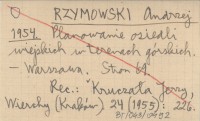 O RZYMOWSKI Andrzej
1954. Planowanie osiedli
wiejskich w terenach górskich.
– Warszawa. Stron 69.
Rec.: Kruczała Jerzy,
Wierchy (Kraków) 24 (1955): 226.
BT/048/0992